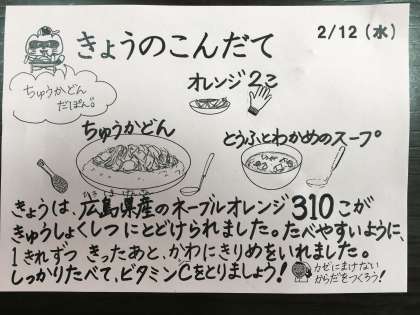 2/12(水)
きょうのこんだて
オレンジ2こ
ちゅうかどん
だぽん。
ちゅうかどん
とうふとわかめのスープ
きょうは、広島県産のネーブルオレンジ310こが
きゅうしょくしつにとどけられました。たべやすいように、
1きれずつきったあと、かわにきりめをいれました。
しっかりたべて、ビタミンCをとりましょう!
かぜにまけない
からだをつくろう!